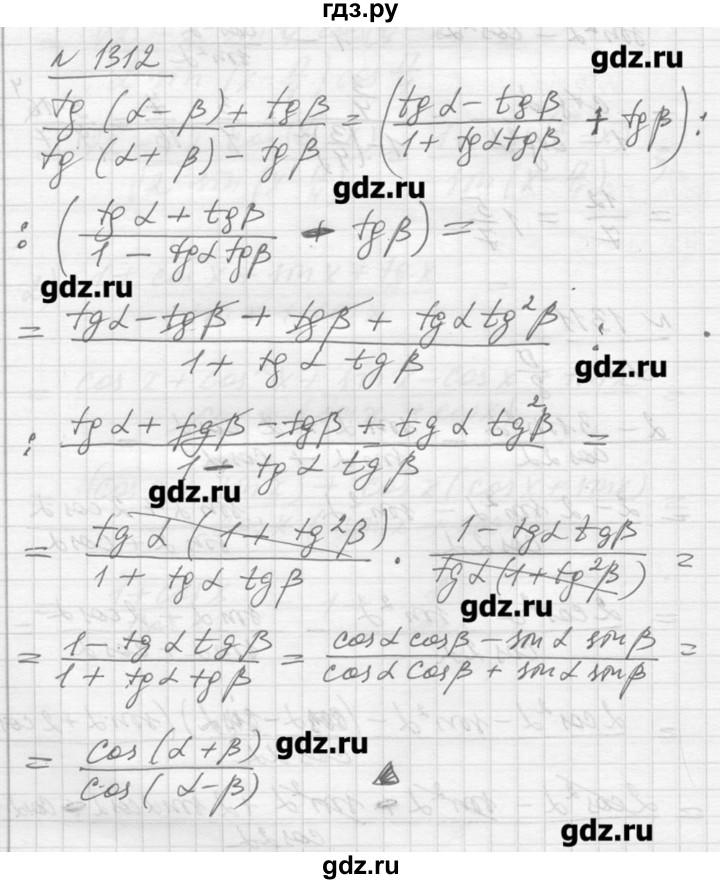 гдз.ру
N 1312
gdz.ru
(tg (α - β) + tg β) / (tg (α + β) - tg β) = ((tg α - tg β) / (1 + tg α tg β) + tg β) :
gdz.ru
: ((tg α + tg β) / (1 - tg α tg β) - tg β) =
gdz.ru
= (tg α - tg β + tg β + tg α tg² β) / (1 + tg α tg β) :
gdz.ru
: (tg α + tg β - tg β + tg α tg² β) / (1 - tg α tg β) =
gdz.ru
= (tg α (1 + tg² β)) / (1 + tg α tg β) · (1 - tg α tg β) / (tg α (1 + tg² β)) =
gdz.ru
= (1 - tg α tg β) / (1 + tg α tg β) = (cos α cos β - sin α sin β) / (cos α cos β + sin α sin β) =
= cos (α + β) / cos (α - β)
gdz.ru
gdz.ru
gdz.ru